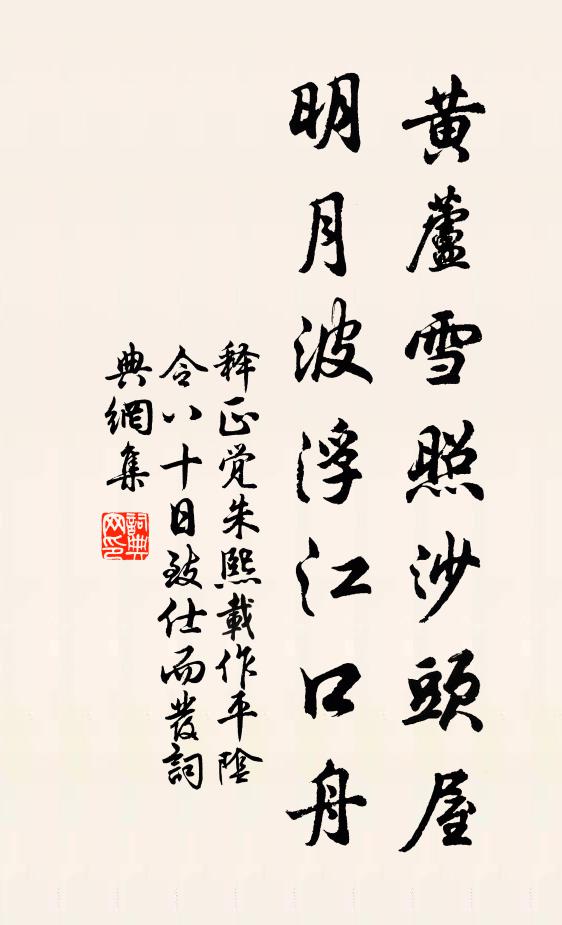 黃蘆雪照沙頭屋
明月波浮江口舟
释正觉朱熙載作平陰
令八十日致仕而發詞
典網集
詞典網印